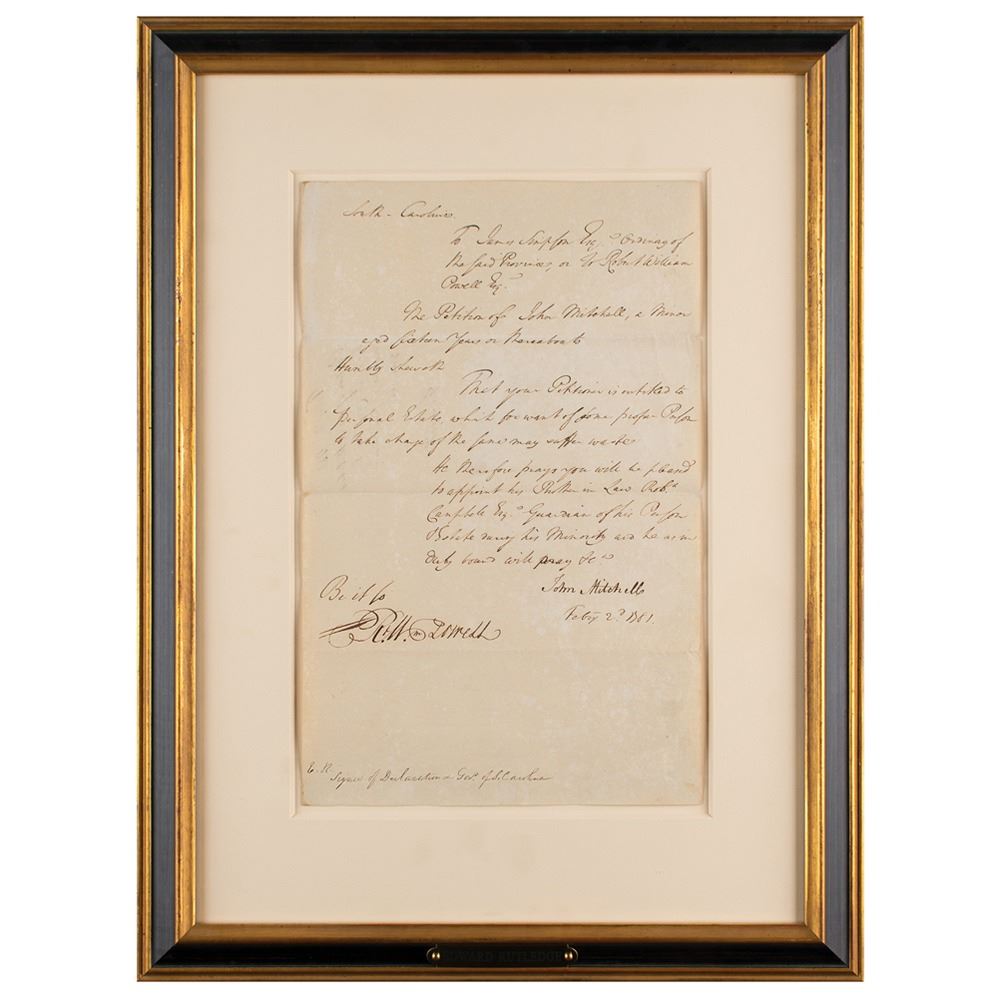 South-Carolina
To James Simpson Esqr. Ordinary of
the said Province, or to Robert William
Powell Esqr.
The Petition of John Mitchell, a Minor
aged sixteen Years or thereabouts
Humbly Sheweth
That your Petitioner is entitled to
personal Estate, which for want of some proper Person
to take charge of the same may suffer waste
He therefore prays you will be pleased
to appoint his Brother in Law Robt.
Campbell Esqr. Guardian of his Person
& Estate during his Minority and he as in
duty bound will pray &c
John Mitchell
Feby 2d.
Be it so
Rt. Wm Powell
E. R.
Signer of Declaration & Govr. of S. Carolina
EDWARD RUTLEDGE